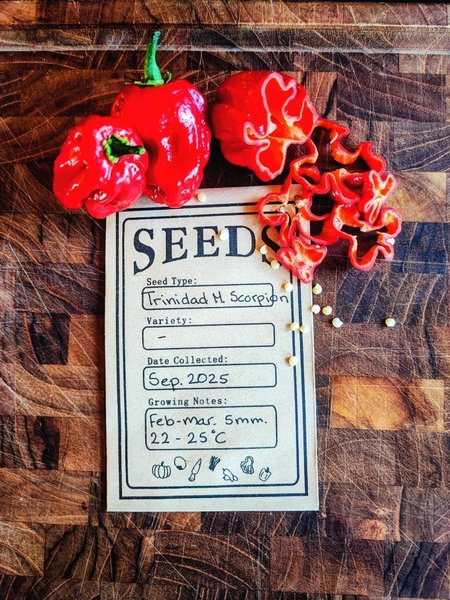 SEEDS
Seed Type:
Trinidad M. Scorpion
Variety:
-
Date Collected:
Sep. 2025
Growing Notes:
Feb-Mar. 5mm.
22 - 25°C